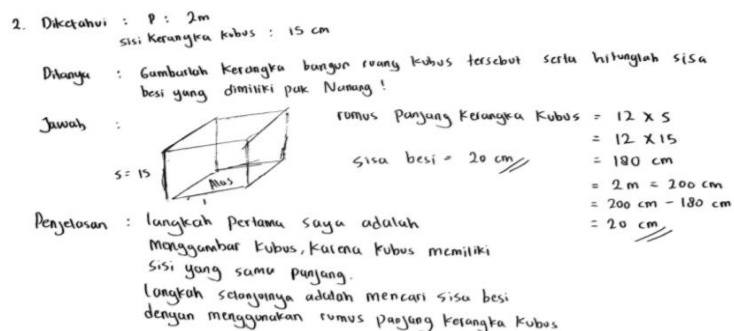 2. Diketahui : P : 2m
sisi Kerangka kubus : 15 cm
Ditanya : Gambarlah Kerangka bangun ruang kubus tersebut serta hitunglah sisa
besi yang dimiliki pak Nanang !
Jawab :
s = 15
Alas
rumus Panjang Kerangka Kubus = 12 x s
= 12 x 15
= 180 cm
= 2 m = 200 cm
= 200 cm - 180 cm
= 20 cm
sisa besi = 20 cm
Penjelasan : langkah Pertama saya adalah
menggambar kubus, karena kubus memiliki
sisi yang sama panjang.
langkah selanjutnya adalah mencari sisa besi
dengan menggunakan rumus panjang kerangka kubus